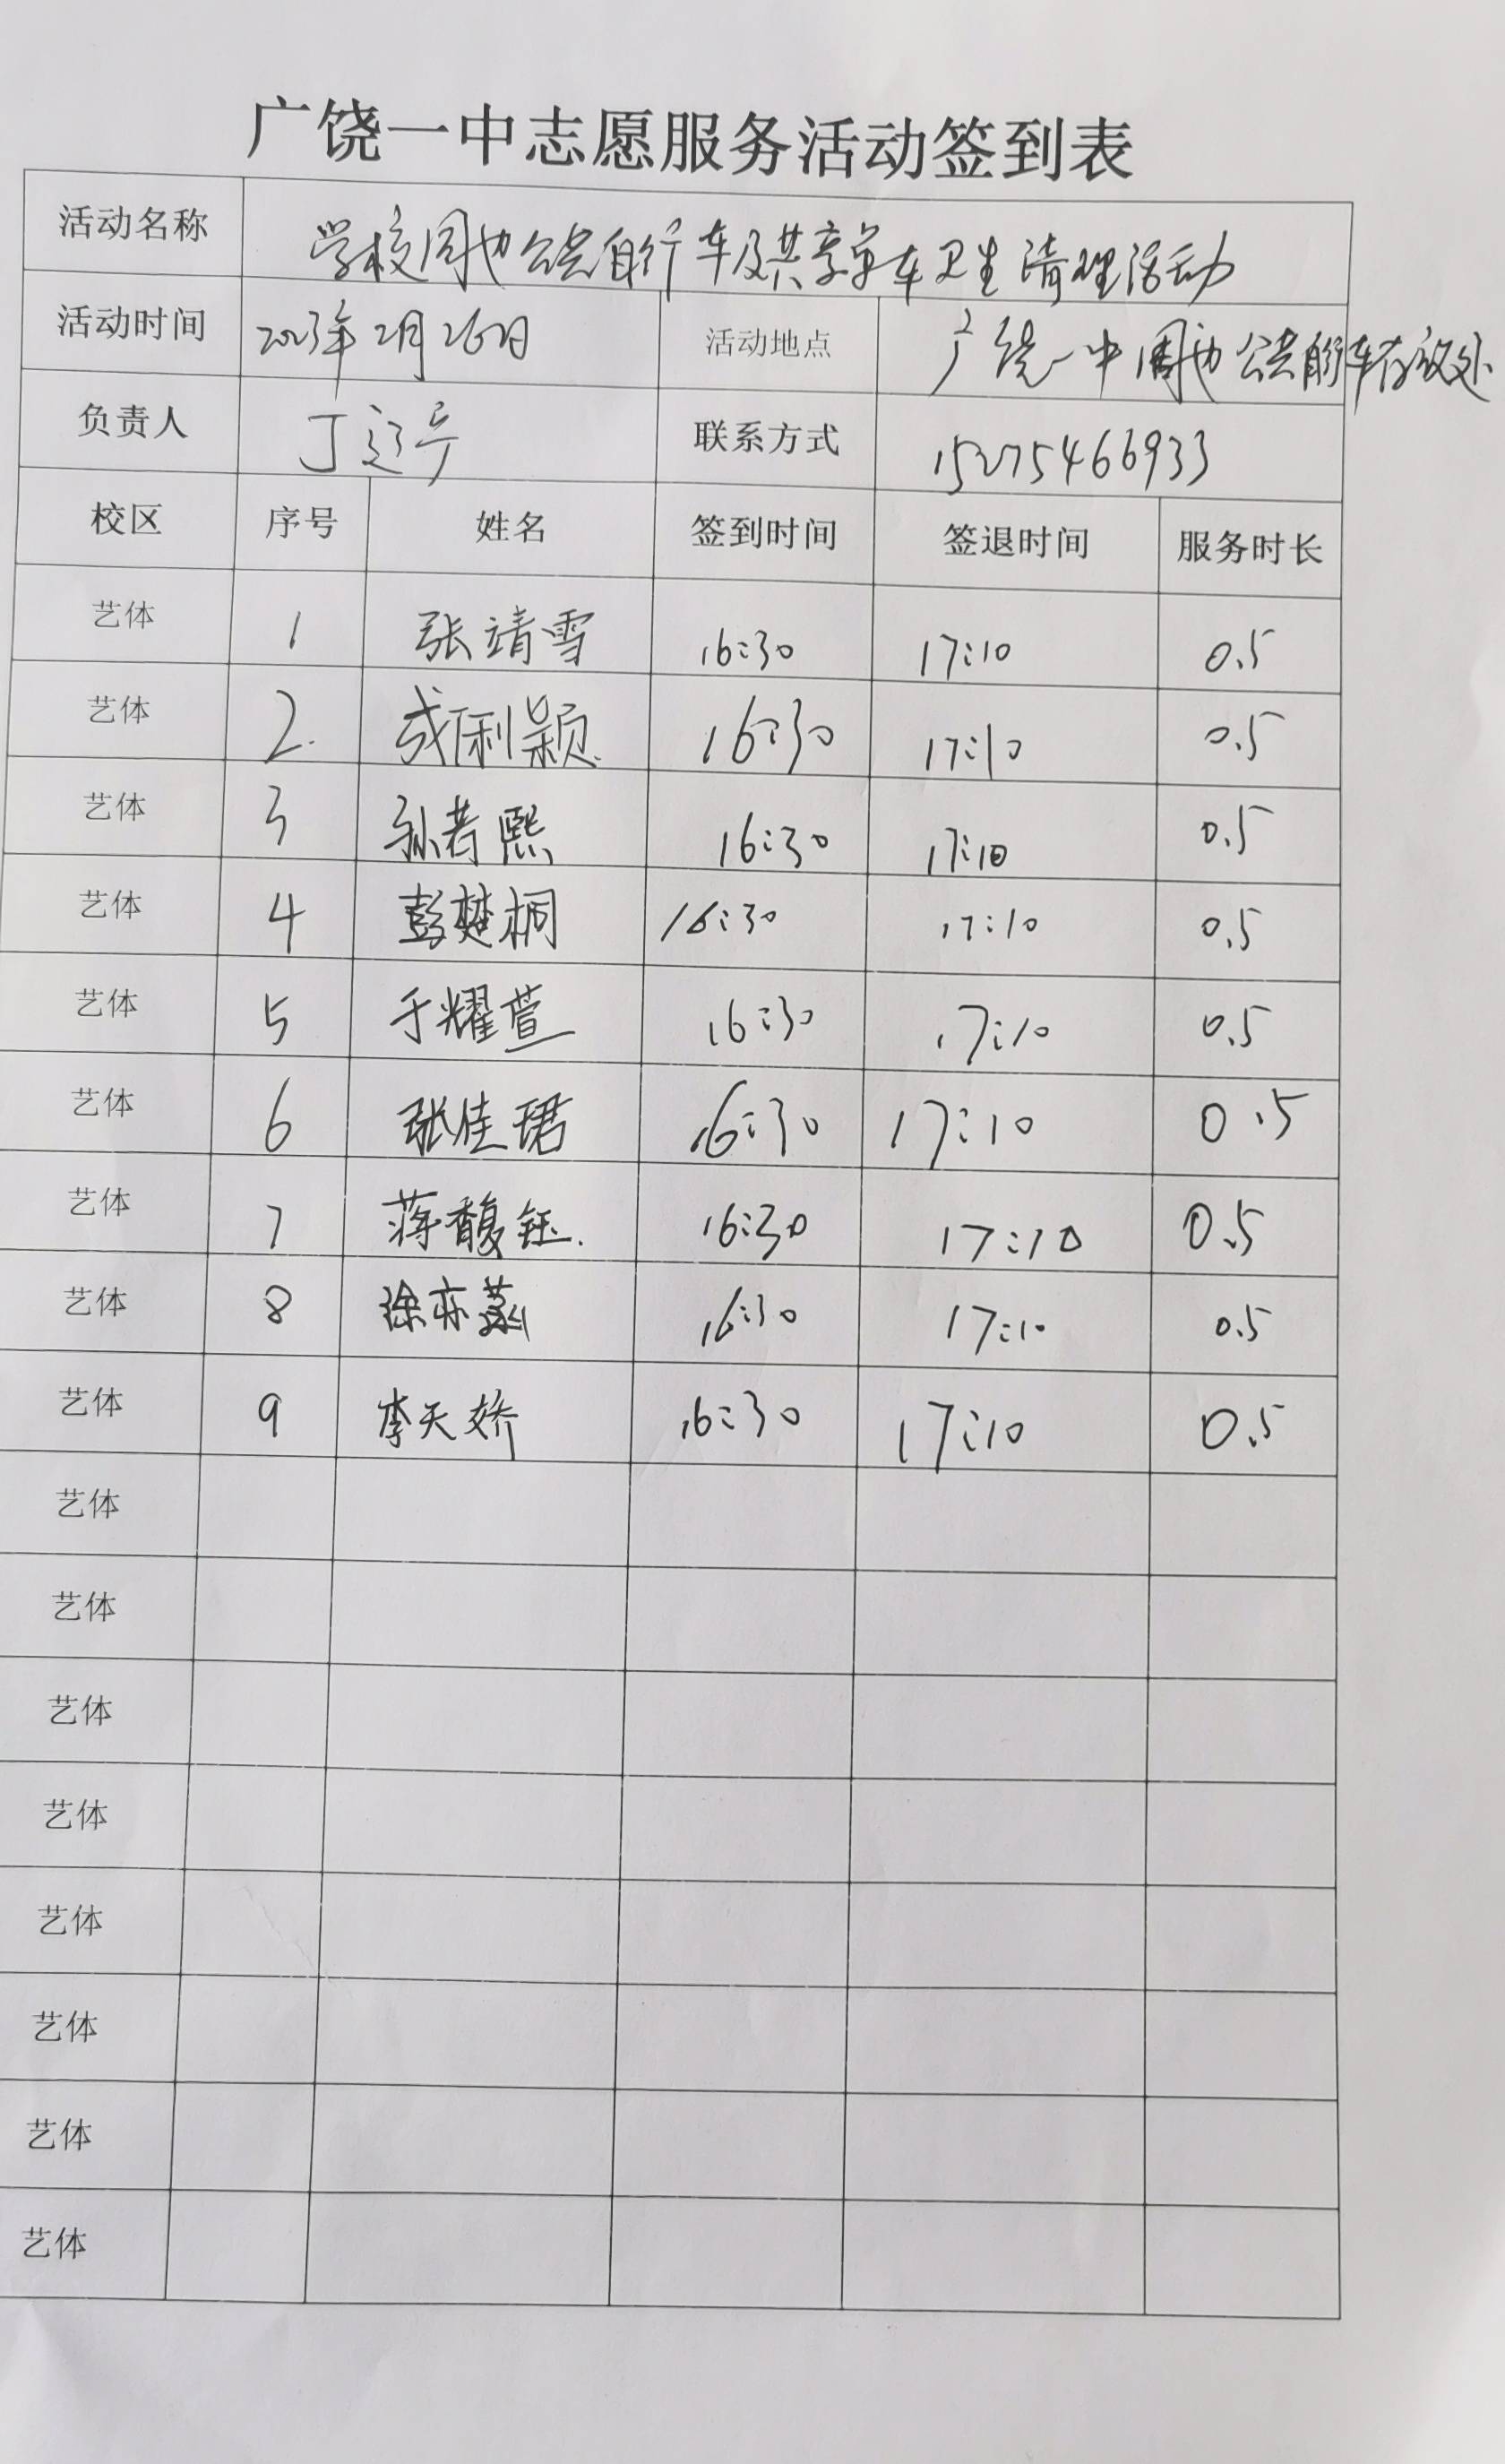 广饶一中志愿服务活动签到表
活动名称 学校周边公共自行车及共享单车卫生清理活动
活动时间 2023年2月26日 活动地点 广饶一中周边公共自行车存放处
负责人 丁辽宁 联系方式 15275466933
校区 序号 姓名 签到时间 签退时间 服务时长
艺体 1 张靖雪 16:30 17:10 0.5
艺体 2. 成俐颖 16:30 17:10 0.5
艺体 3 孙若熙 16:30 17:10 0.5
艺体 4 彭楚桐 16:30 17:10 0.5
艺体 5 于耀萱 16:30 17:10 0.5
艺体 6 张佳珺 16:30 17:10 0.5
艺体 7 蒋馥钰. 16:30 17:10 0.5
艺体 8 徐亦 16:30 17:10 0.5
艺体 9 李天娇 16:30 17:10 0.5
艺体
艺体
艺体
艺体
艺体
艺体
艺体
艺体